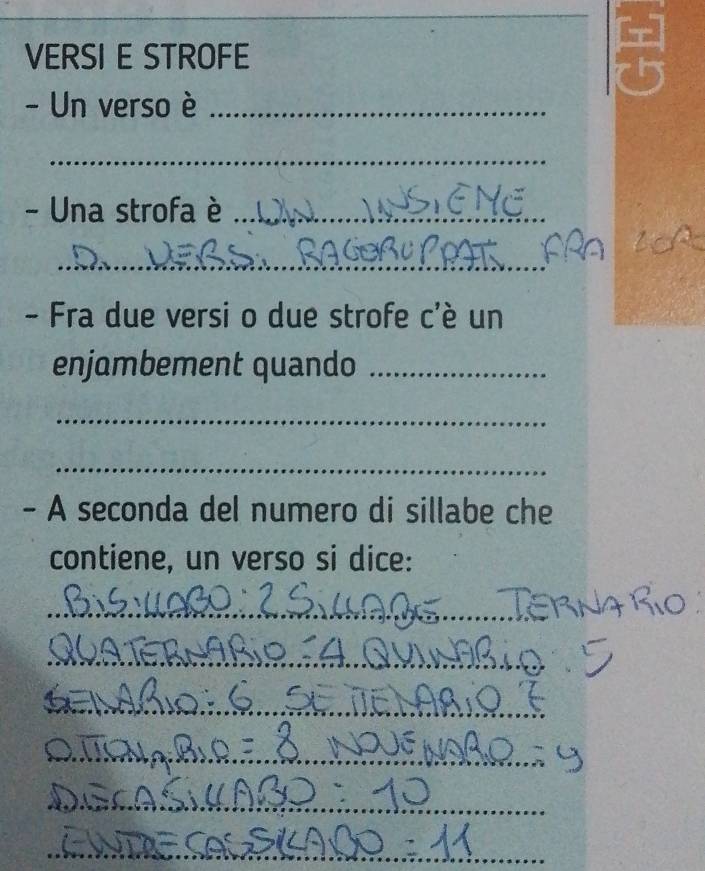 GEI
VERSI E STROFE
- Un verso è
- Una strofa è UN INSIEME
DI VERSI RAGGRUPPATI FRA LOR
- Fra due versi o due strofe c'è un
enjambement quando
- A seconda del numero di sillabe che
contiene, un verso si dice:
BISILLABO: 2 SILLABE TERNARIO:
QUATERNARIO = 4 QUINARIO: 5
SENARIO: 6 SETTENARIO 7
OTTONARIO = 8 NOVENARO = 9
DECASILLABO: 10
ENDECASSILABO = 11